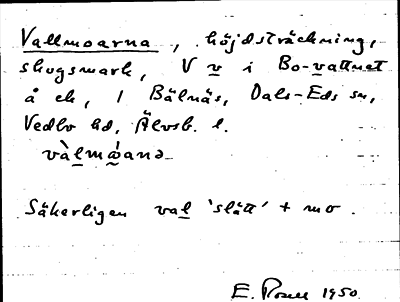 Vallmoarna, höjdsträckning,
skogsmark, V v i Bo-vattnet
å ek, 1 Bälnäs, Dals-Eds sn,
Vedbo hd, Älvsb. l.
Säkerligen val 'slätt' + mo.
E. 1950